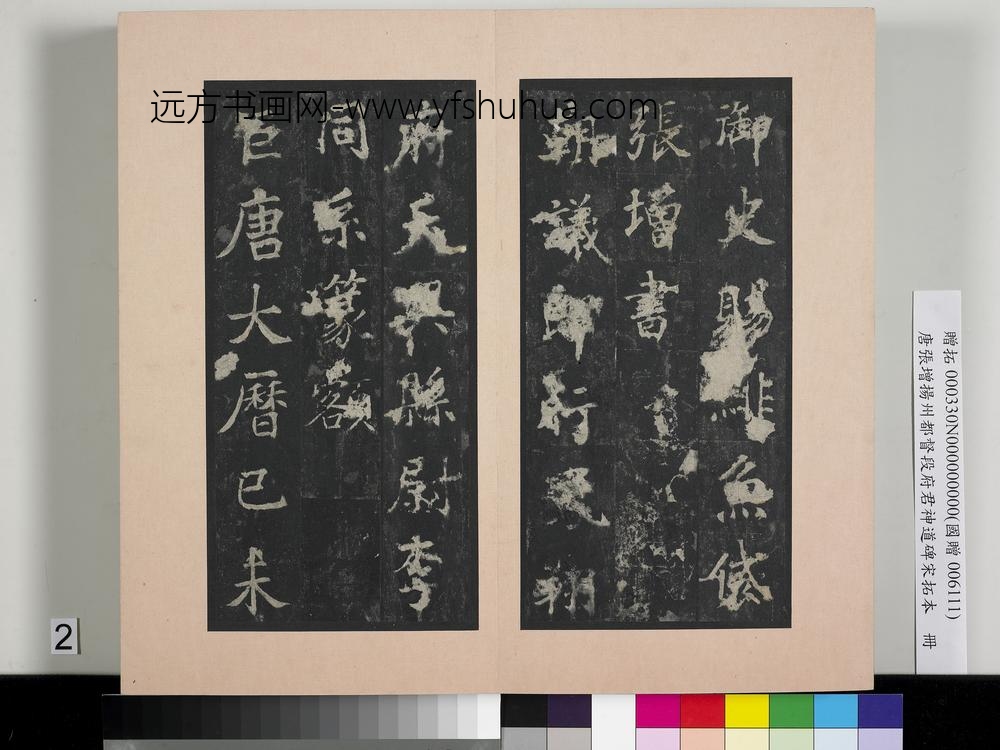 远方书画网-www.yfshuhua.com
御史賜緋魚袋
張增書
朝議郎行京朝
府天興縣尉李
同系篆額
巨唐大曆己未
贈拓 000330N000000000(國贈 006111)
唐張增揚州都督段府君神道碑宋拓本 冊
2